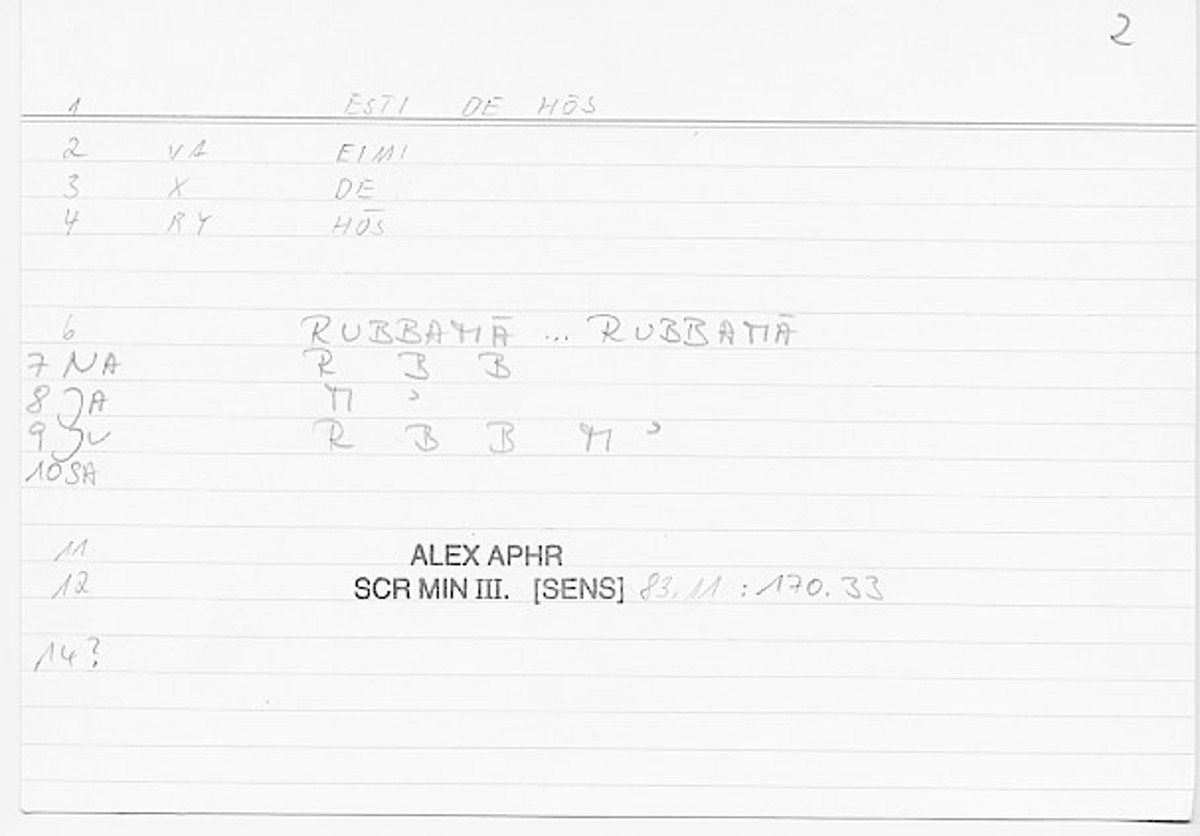 2
1 ESTI DE HŌS
2 VA EIMI
3 X DE
4 RY HŌS
6 RUBBAMĀ ... RUBBAMĀ
7 NA R B B
8 JA M ʾ
9 JU R B B M ʾ
10 SA
11 ALEX APHR
12 SCR MIN III. [SENS] 83.11 : 170.33
14?